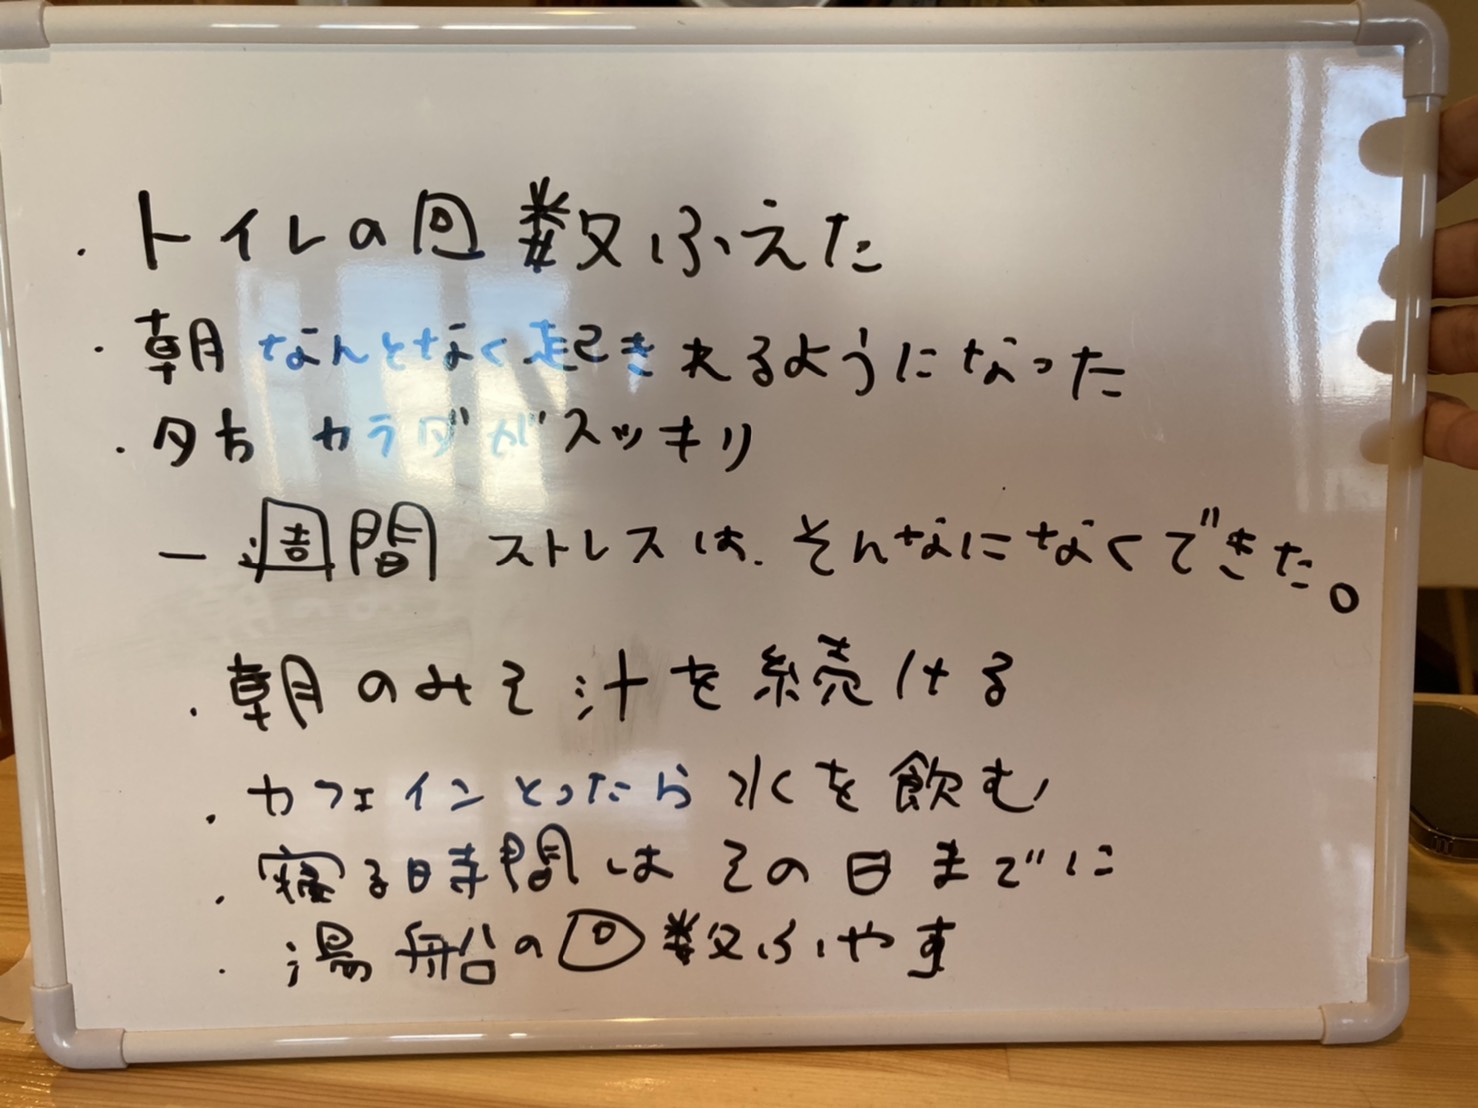 ・トイレの回数ふえた
・朝なんとなく起きれるようになった
・夕方 カラダがスッキリ
一週間 ストレスは、そんなになくできた。
・朝のみそ汁を続ける
・カフェインとったら水を飲む
・寝る時間はその日までに
・湯船の回数ふやす